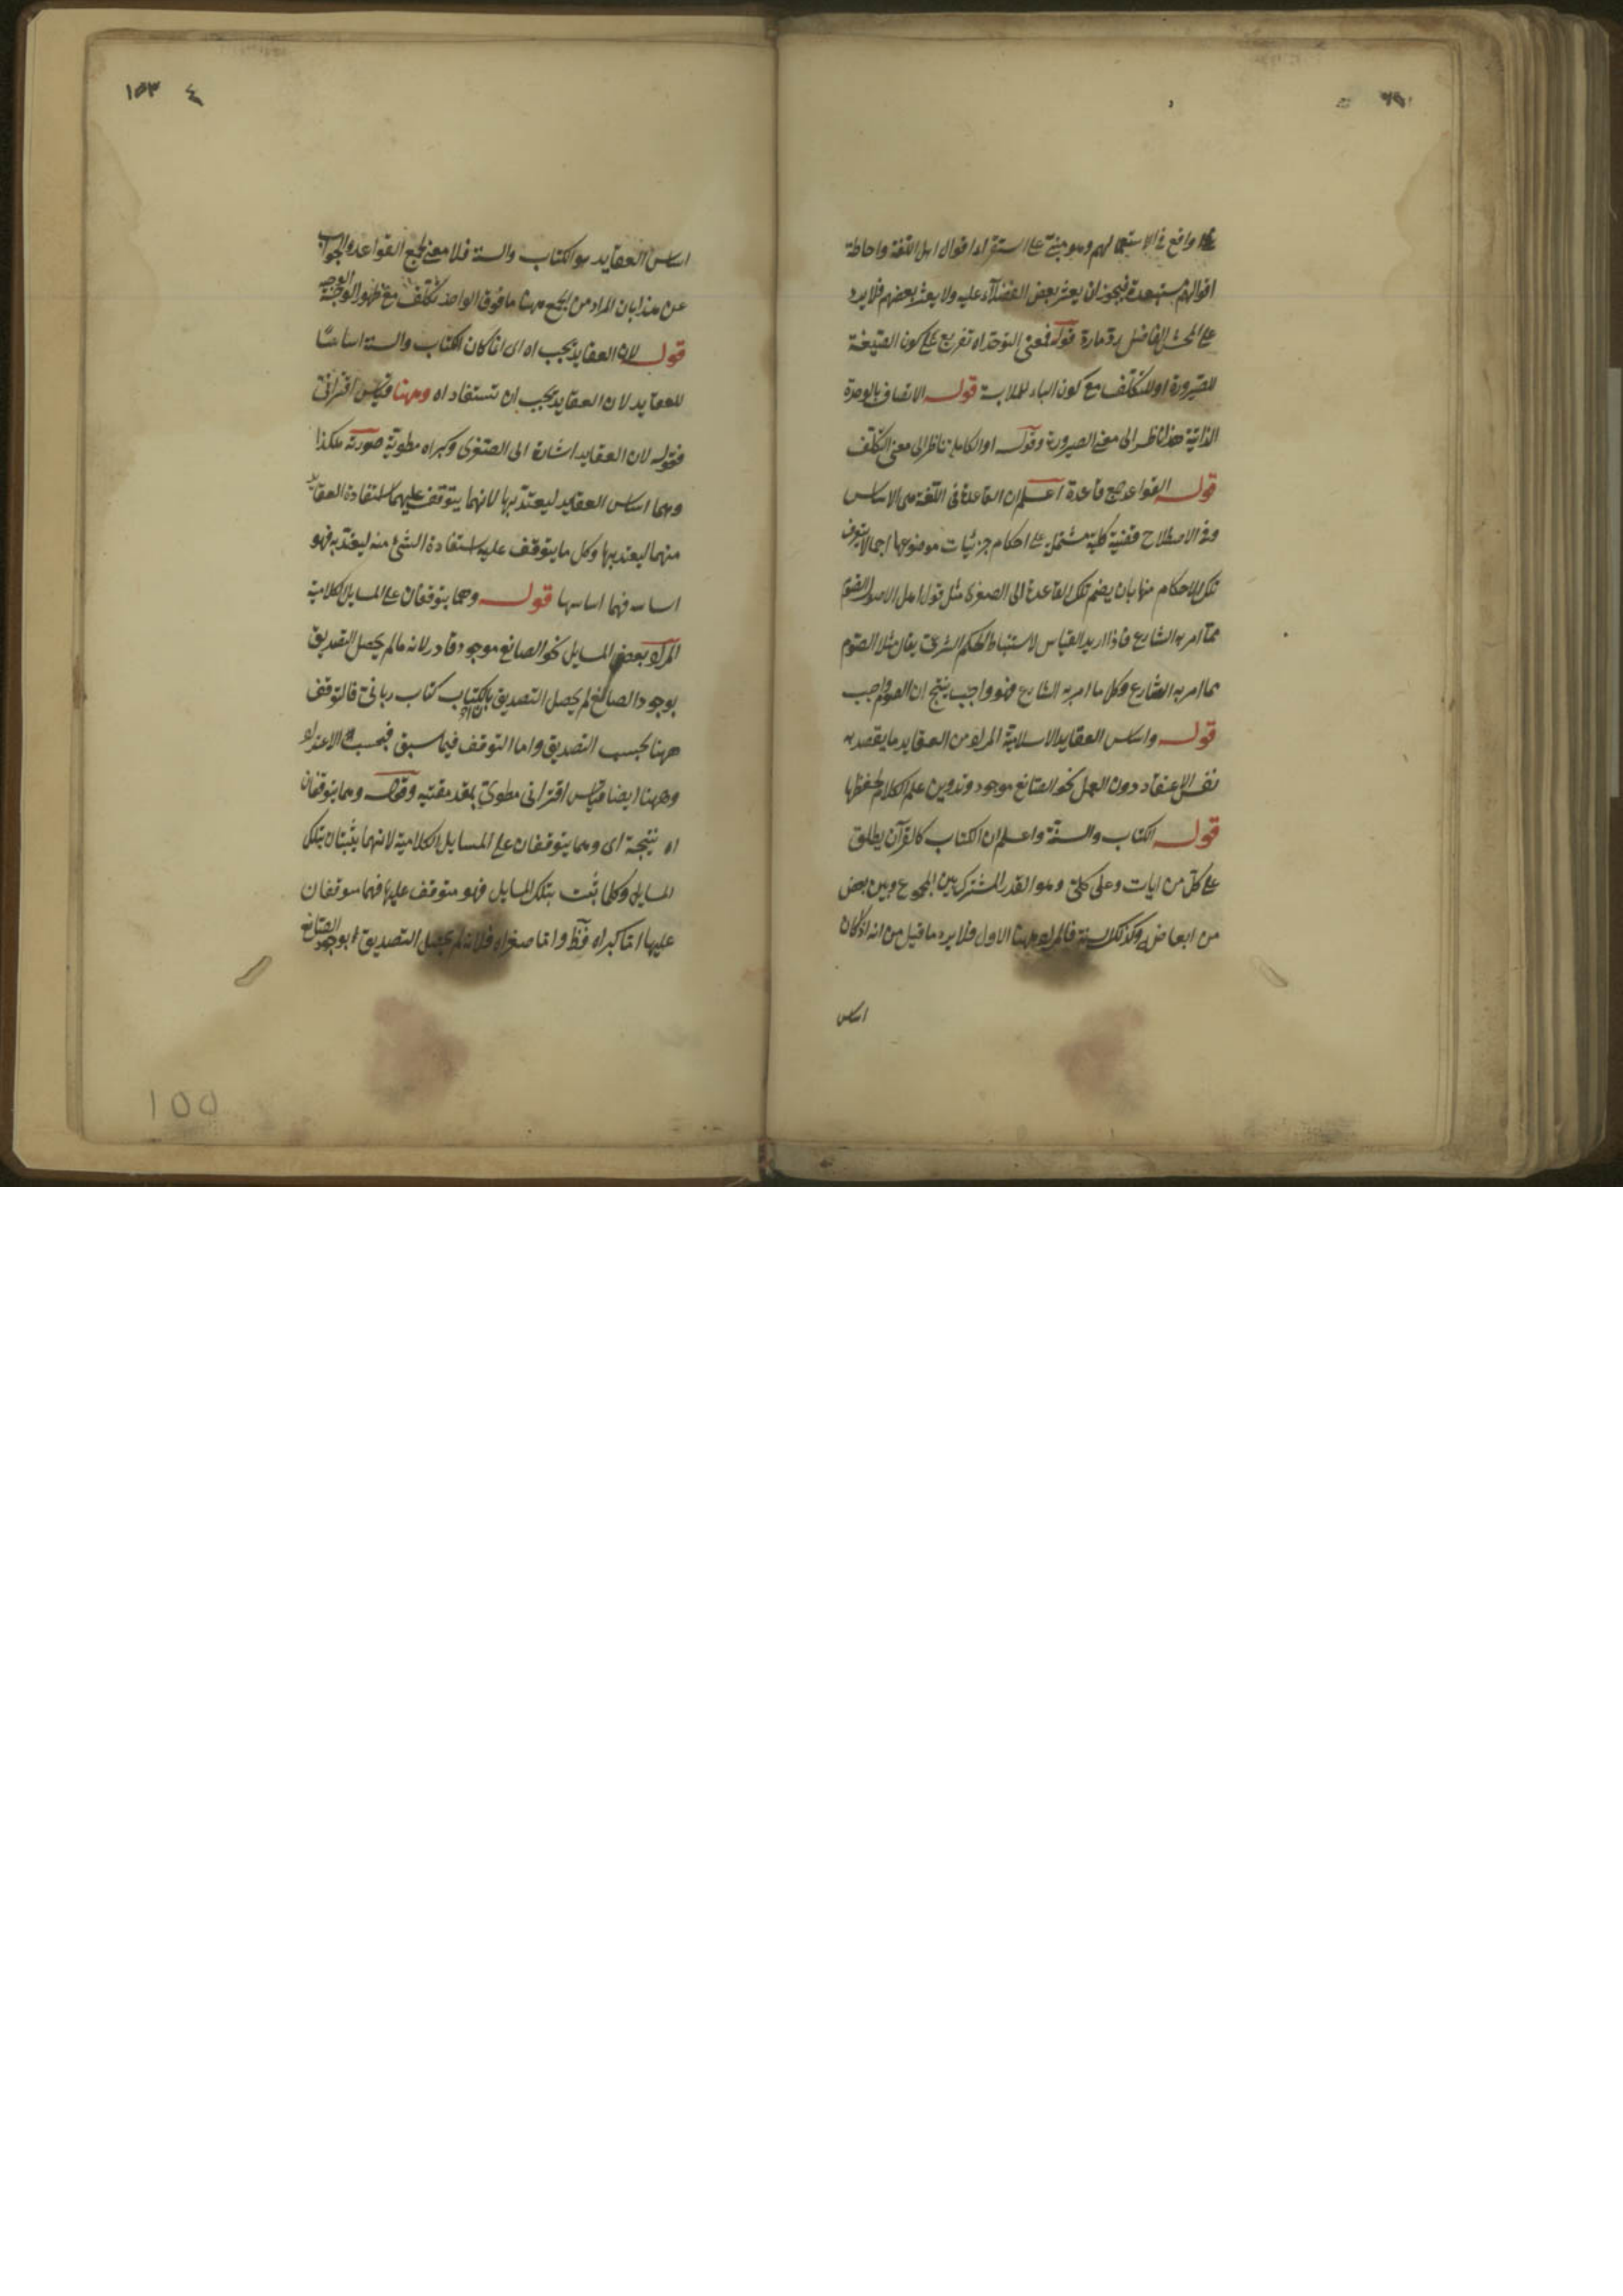 واقع في الاستعمالهم وهو مبني على استقراء اقوال اهل اللغة واحاطة
اقوالهم مستبعدة فيجوز ان يعثر بعض الفضلاء عليه ولا يعثر بعضهم فلا يرد
على المحشى الفاضل قوله فمعنى التوحد اه تفريع على كون الصيغة
للصيرورة او للتكلف مع كون الباء للملابسة قوله الاتصاف بالوحدة
الذاتية هذا ناظر الى معنى الصيرورة وقوله او الكاملة ناظر الى معنى التكلف
قوله القواعد جمع قاعدة اعلم ان القاعدة في اللغة هى الاساس
وفي الاصطلاح قضية كلية مشتملة على احكام جزئيات موضوعها اجمالا يتعرف
تلك الاحكام منها بان يضم تلك القاعدة الى الصغرى مثل قول اهل الاصول الصوم
مما امر به الشارع فاذا اريد القياس لاستنباط الحكم الشرعي يقال مثلا الصوم
مما امر به الشارع وكل ما امر به الشارع فهو واجب ينتج ان الصوم واجب
قوله واساس العقايد الاسلامية المراد من العقايد ما يقصد به
نفس الاعتقاد دون العمل نحو الصانع موجود وتدوين علم الكلام لحفظها
قوله الكتاب والسنة واعلم ان الكتاب كالقرآن يطلق
على كل من ايات وعلى كلى وهو القدر المشترك بين المجموع وبين بعض
من ابعاضه وكذلك السنة فالمراد ههنا الاول فلا يرد ما قيل من انه اذا كان
اساس
١٥٣ ٤
اساس العقايد هو الكتاب والسنة فلا معنى لجمع القواعد والجواب
عن هذا بان المراد من الجمع ههنا ما فوق الواحد تكلف مع ظهور الوجه
قوله لان العقايد يجب اه اى انما كان الكتاب والسنة اساسا
للعقايد لان العقايد يجب ان تستفاد اه وههنا قياس اقترانى
فقوله لان العقايد اشارة الى الصغرى وكبراه مطوية صورته هكذا
وهما اساس العقايد ليعتد بها لانهما يتوقف عليهما استفادة العقايد
منهما ليعتد بها وكل ما يتوقف عليه استفادة الشئ منه ليعتد به فهو
اساسه فهما اساسها قوله وهما يتوقفان على المسايل الكلامية
المراد بعض المسايل نحو الصانع موجود وقادر لانه ما لم يحصل التصديق
بوجود الصانع لم يحصل التصديق بالكتاب كتاب رباني فالتوقف
ههنا بحسب التصديق واما التوقف فيما سبق فبحسب الاعتداد
وههنا ايضا قياس اقترانى مطوى بمقدمتيه وقوله وهما يتوقفان
اه نتيجة اى وهما يتوقفان على المسايل الكلامية لانهما يثبتان بتلك
المسايل وكلما يثبت بتلك المسايل فهو متوقف عليها فهما متوقفان
عليها اما كبراه فظ واما صغراه فلانه لم يحصل التصديق بوجود الصانع
100